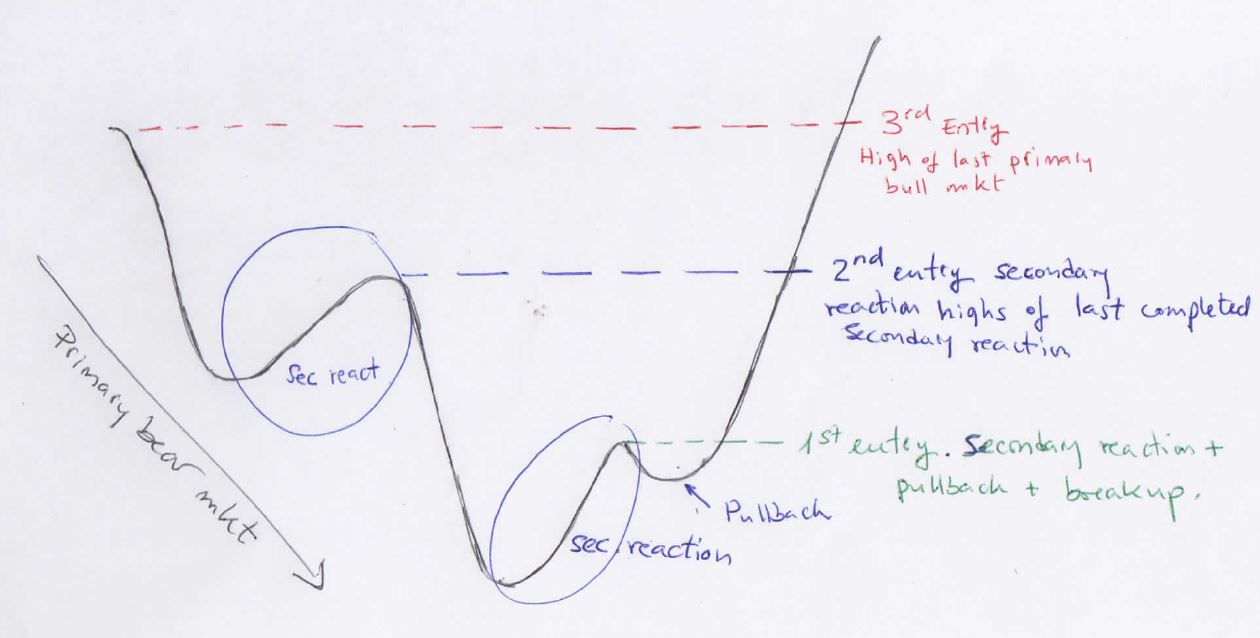 3rd Entry
High of last primary
bull mkt
2nd entry secondary
reaction highs of last completed
Secondary reaction
Sec react
Primary bear mkt
1st entry. Secondary reaction +
pullback + breakup.
Pullback
sec reaction